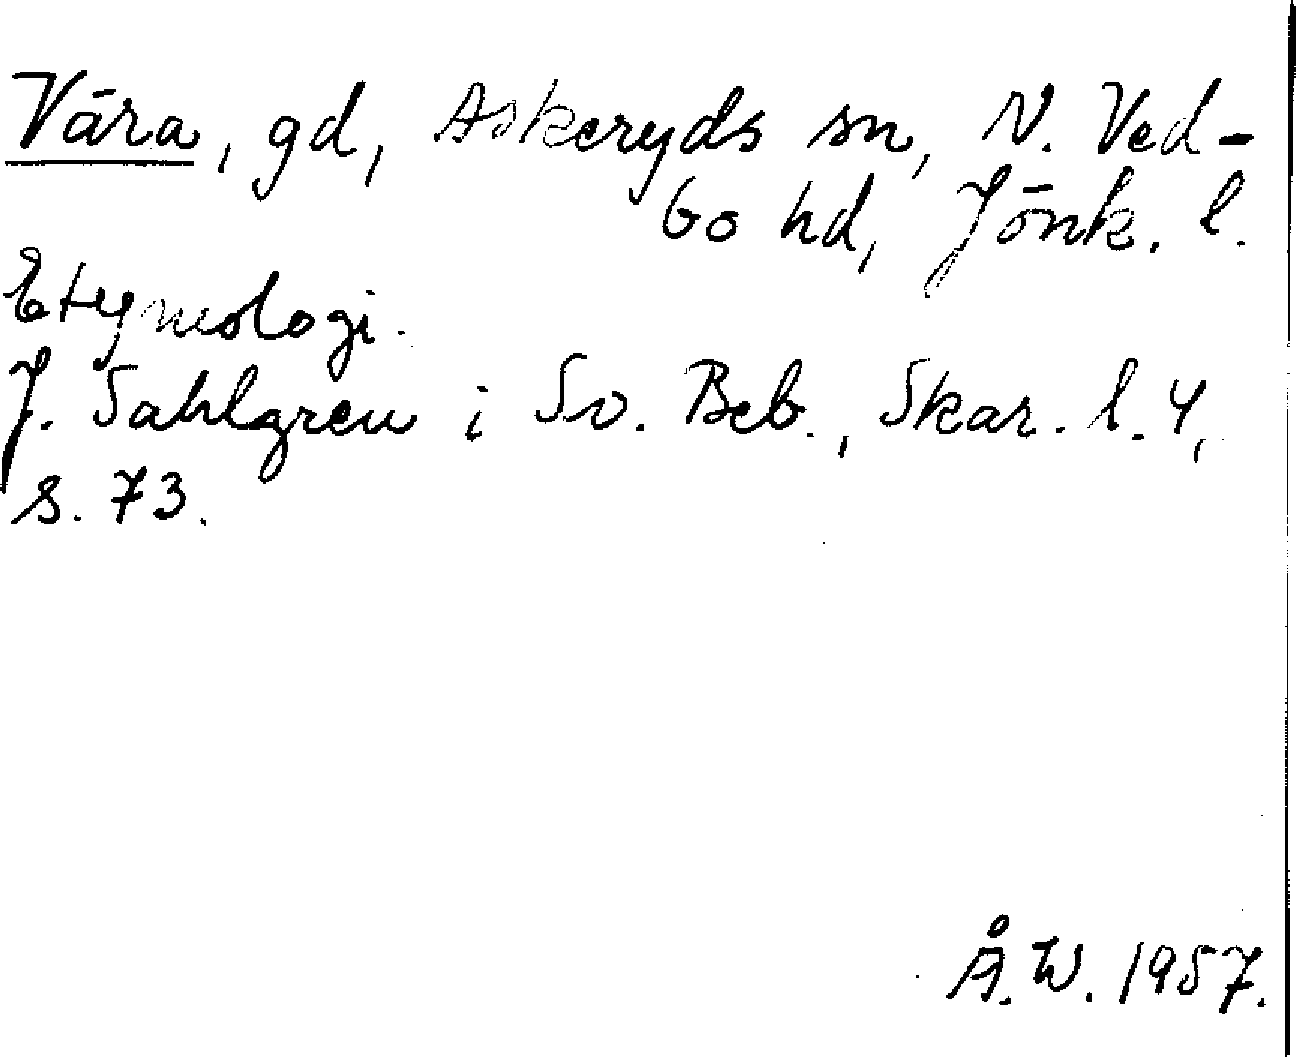 Vära, gd, Askeryds sn, N. Ved-
bo hd, Jönk. l.
Etymologi.
J. Sahlgren i Sv. Beb., Skar. l. 4,
s. 73.
Å.W. 1957.